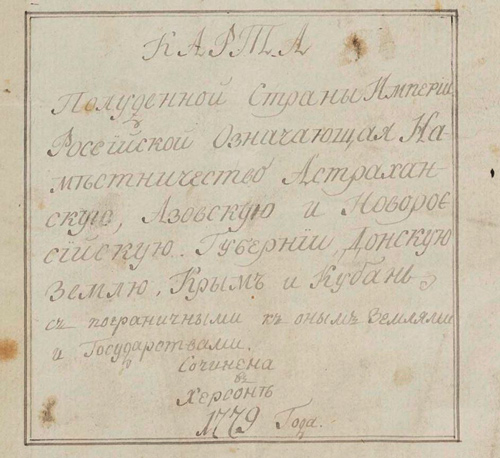 КАРТА
Полуденной Страны Имперiи
Россiйской Означающая На-
мѣстничество Астрахан-
скую, Азовскую и Новорос
сiйскую Губернiи, Донскую
Землю, Крымъ и Кубань
съ пограничными къ онымъ Землями
и Государствами.
Сочинена
въ
Херсонѣ
1779 Года.